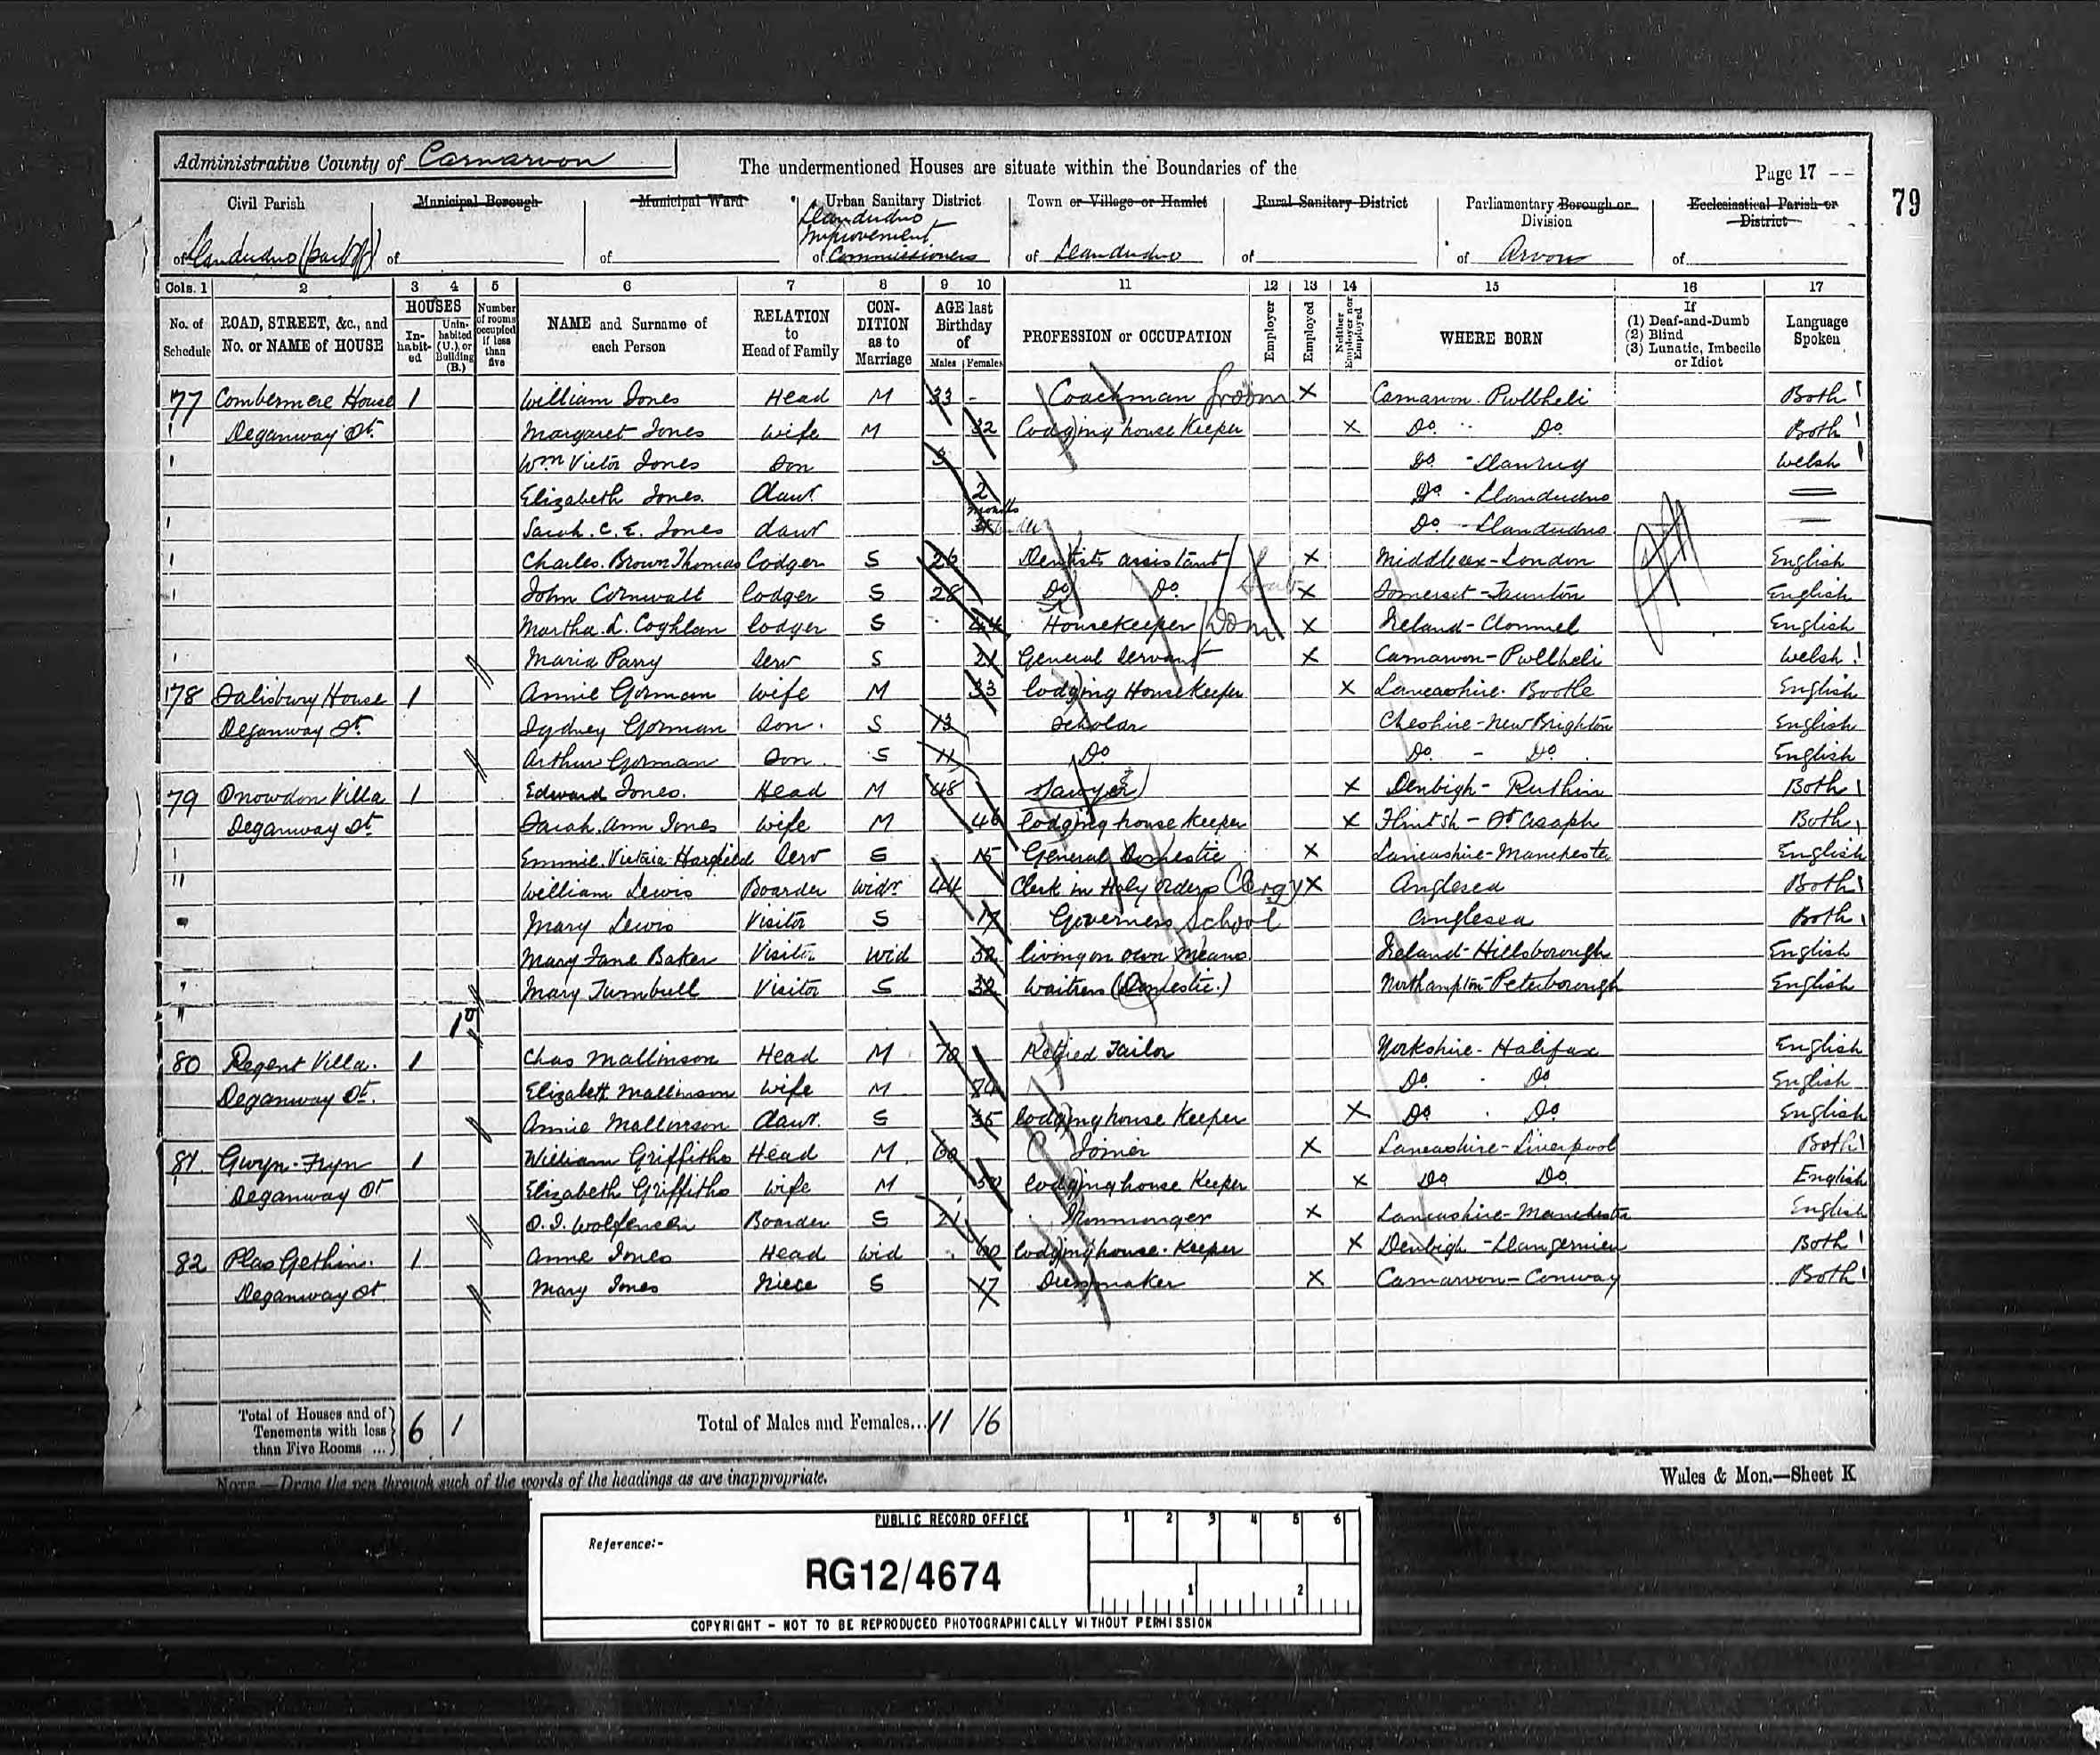 Administrative County of Carnarvon
The undermentioned Houses are situate within the Boundaries of the
Page 17
79
Civil Parish
Municipal Borough
Municipal Ward
Urban Sanitary District
Town or Village or Hamlet
Rural Sanitary District
Parliamentary Borough or Division
Ecclesiastical Parish or District
of Llandudno (part of)
of
of
Llandudno Improvement
of Commissioners
of Llandudno
of
of Arvon
of
Cols. 1 2 3 4 5 6 7 8 9 10 11 12 13 14 15 16 17
No. of Schedule
ROAD, STREET, &c., and No. or NAME of HOUSE
HOUSES
In-habit-ed
Unin-habited (U.), or Building (B.)
Number of rooms occupied if less than five
NAME and Surname of each Person
RELATION to Head of Family
CON-DITION as to Marriage
AGE last Birthday of
Males Females
PROFESSION or OCCUPATION
Employer
Employed
Neither Employer nor Employed
WHERE BORN
If
(1) Deaf-and-Dumb
(2) Blind
(3) Lunatic, Imbecile or Idiot
Language Spoken
77 Combermere House 1 William Jones Head M 33 - Coachman Groom X Carnarvon. Pwllheli Both
Deganway St. Margaret Jones Wife M 32 Lodging house Keeper X Do. Do. Both
Wm Victor Jones Son 3 Do - Llanrug Welsh
Elizabeth Jones. Daur. 2 Do - Llandudno
Sarah. C. E. Jones daur months 3 Do - Llandudno
Charles. Brown Thomas Lodger S 26 Dentists assistant X Middlesex - London English
John Cornwall lodger S 28 Do Do. X Somerset - Taunton English
Martha. L. Coghlan lodger S 44 Housekeeper Dom X Ireland - Clonmel English
Maria Parry Serv S 21 General Servant X Carnarvon - Pwllheli Welsh
178 Salisbury House 1 Annie Gorman Wife M 33 lodging Housekeeper X Lancashire. Bootle English
Deganway St. Sydney Gorman Son. S 13 Scholar Cheshire - New Brighton English
Arthur Gorman Son. S 11 Do Do. - Do. English
79 Snowdon Villa 1 Edward Jones. Head M 48 Sawyer X Denbigh - Ruthin Both
Deganway St. Sarah. Ann Jones Wife M 46 lodging house Keeper X Flintsh - St Asaph Both
Emmie. Victoria Serv S 15 General Domestic X Lancashire - Manchester English
William Lewis Boarder Widr 44 Clerk in Holy orders Clergy X Anglesea Both
Mary Lewis Visitor S 17 Governess School Anglesea Both
Mary Jane Baker Visitor Wid 32 living on own Means Ireland - Hillsborough English
Mary Turnbull Visitor S 32 Waitress (Domestic.) Northampton - Peterborough English
1
80 Regent Villa. 1 Chas Mallinson Head M 70 Retired Tailor Yorkshire - Halifax English
Deganway St. Elizabeth Mallinson Wife M 74 Do. Do English
Annie Mallinson Daur. S 35 lodging house Keeper X Do. Do. English
81. Gwyn - Fryn 1 William Griffiths Head M. 60 Joiner X Lancashire - Liverpool Both
Deganway St Elizabeth Griffiths Wife M 50 lodging house Keeper X Do Do. English
Boarder S 21 Ironmonger X Lancashire - Manchester English
82 Plas Gethin. 1 Anne Jones Head Wid 60 lodging house. Keeper X Denbigh - Llangernieu Both
Deganway St. Mary Jones Niece S 17 Dressmaker X Carnarvon - Conway Both
Total of Houses and of Tenements with less than Five Rooms ... 6 1
Total of Males and Females... 11 16
NOTE.—Draw the pen through such of the words of the headings as are inappropriate.
Wales & Mon.—Sheet K
PUBLIC RECORD OFFICE
Reference:-
RG12/4674
1 2 3 4 5 6
1 2
COPYRIGHT - NOT TO BE REPRODUCED PHOTOGRAPHICALLY WITHOUT PERMISSION